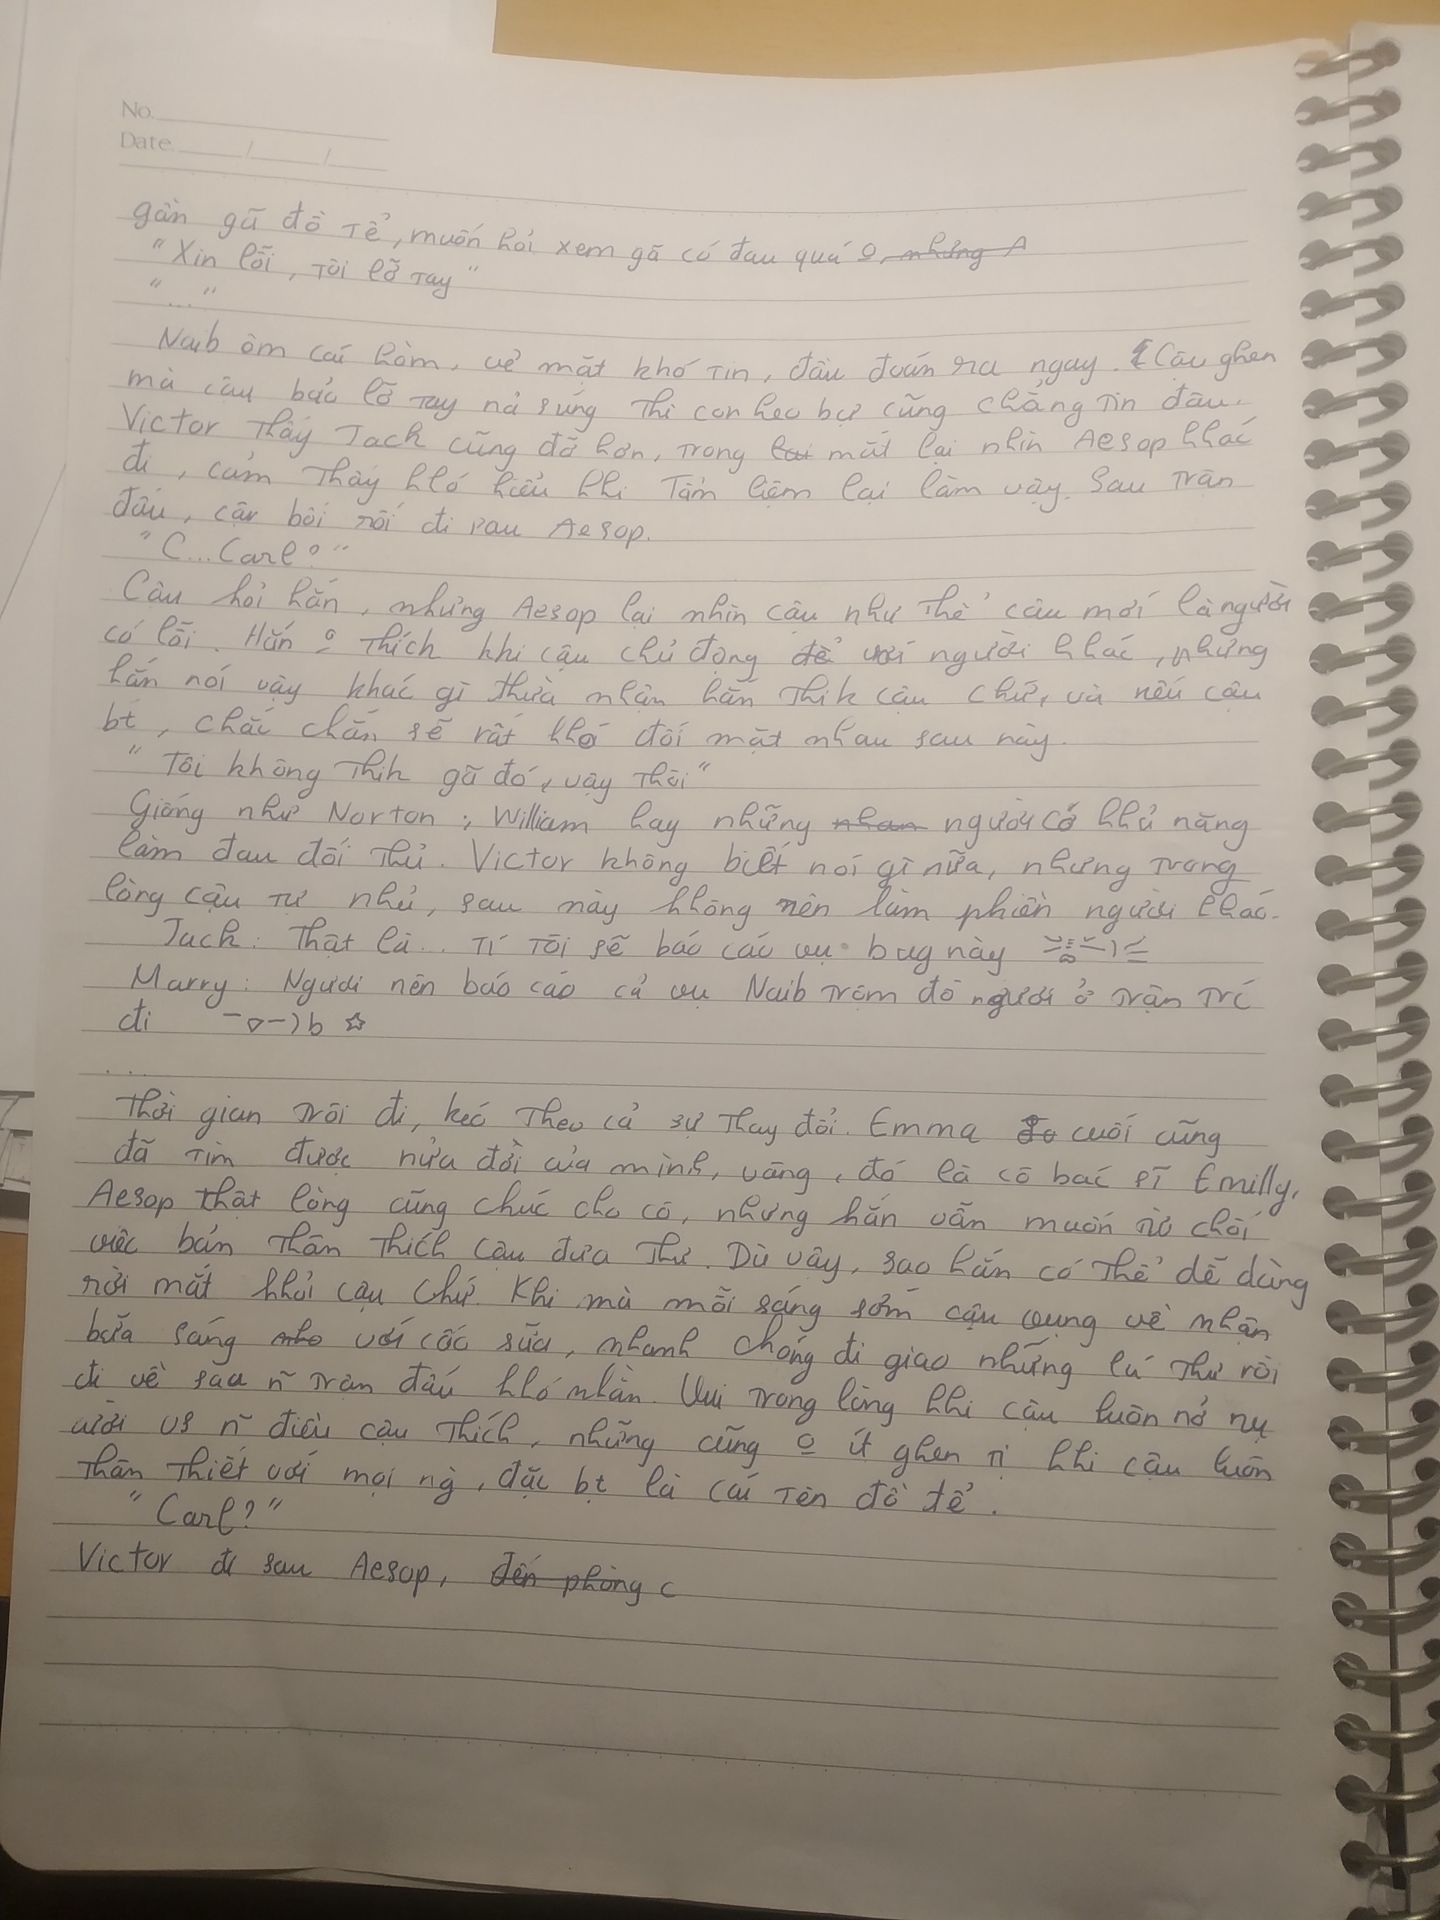 No.
Date / /
gần gã đồ tể, muốn hỏi xem gã có đau quá o, nhưng A
"Xin lỗi, tôi lỡ tay"
"..."
Naib ôm cái hòm, vẻ mặt khó tin, đấu đoán ra ngay. Cậu ghen
mà cậu bảo lỡ tay nả súng thì con heo bự cũng chẳng tin đâu.
Victor thấy Jack cũng đỡ hơn, trong mắt lại nhìn Aesop khác
đi, cảm thấy khó hiểu khi Tẩm liệm lại làm vậy. Sau trận
đấu, cậu bối rối đi sau Aesop.
"C...Carl?"
Cậu hỏi hắn, nhưng Aesop lại nhìn cậu như thể cậu mới là người
có lỗi. Hắn o thích khi cậu chủ động để với người khác, nhưng
hắn nói vậy khác gì thừa nhận hắn thik cậu chứ, và nếu cậu
bt, chắc chắn sẽ rất khó đối mặt nhau sau này.
"Tôi không thik gã đó, vậy thôi"
Giống như Norton, William hay những nhan người có khả năng
làm đau đối thủ. Victor không biết nói gì nữa, nhưng trong
lòng cậu tự nhủ, sau này không nên làm phiền người khác.
Jack: Thật là... Tí tôi sẽ báo cáo vụ bug này
Marry: Ngươi nên báo cáo cả vụ Naib trộm đồ ngươi ở trận trc
đi -▽-)b ☆
...
Thời gian trôi đi, kéo theo cả sự thay đổi. Emma cuối cũng
đã tìm được nửa đời của mình, vâng, đó là cô bác sĩ Emilly,
Aesop thật lòng cũng chúc cho cô, nhưng hắn vẫn muốn từ chối
việc bản thân thích cậu đưa thư. Dù vậy, sao hắn có thể dễ dàng
rời mắt khỏi cậu chứ. Khi mà mỗi sáng sớm cậu vụng về nhận
bữa sáng với cốc sữa, nhanh chóng đi giao những lá thư rồi
đi về sau n~ trận đấu khó nhằn. Vui trong lòng khi cậu luôn nở nụ
cười vs n~ điều cậu thích, nhưng cũng o ít ghen tị khi cậu luôn
thân thiết với mọi ng, đặc bt là cái tên đồ để.
"Carl?"
Victor đi sau Aesop, đến phòng c